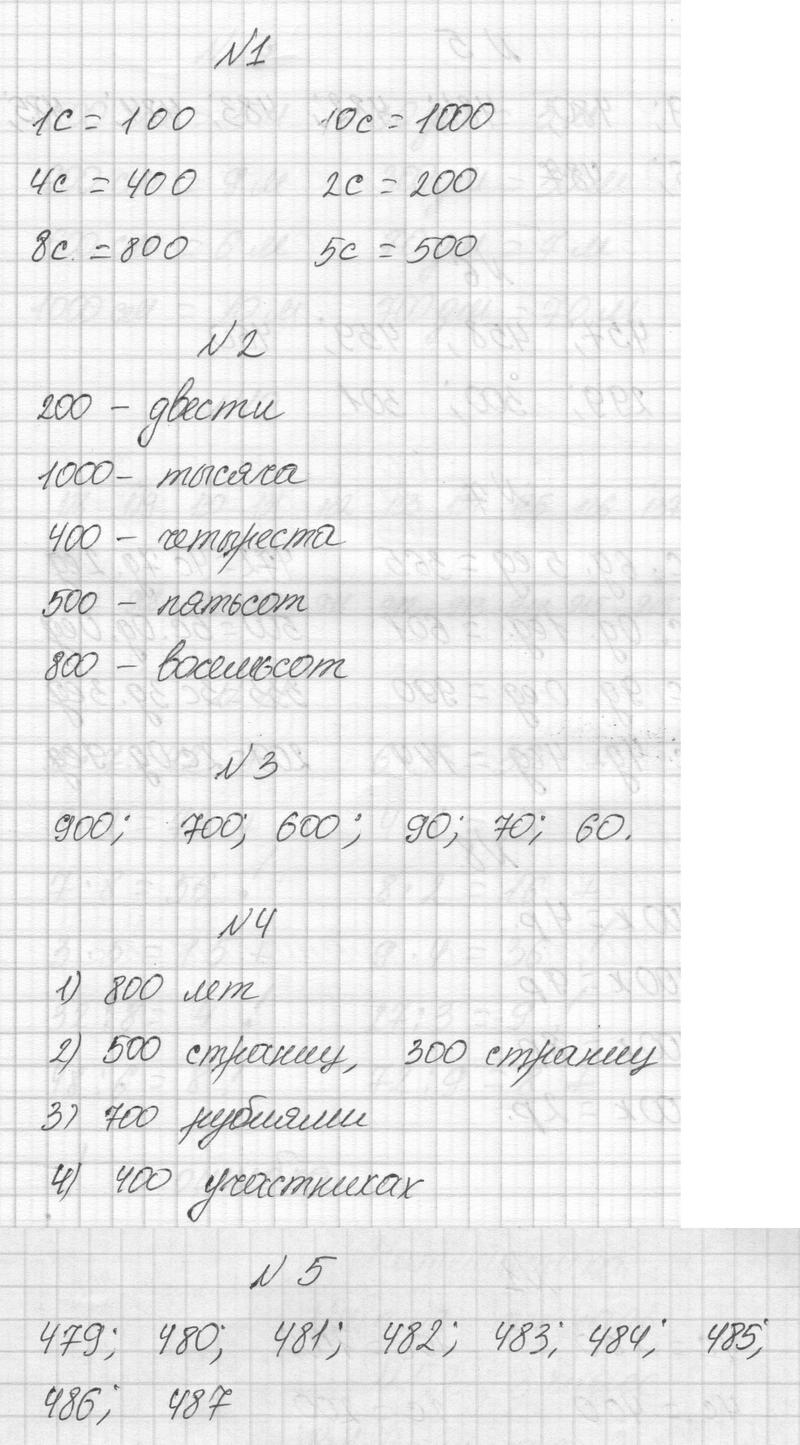 №1
1с = 100 10с = 1000
4с = 400 2с = 200
8с. = 800 5с = 500
№2
200 – двести
1000 – тысяча
400 – четыреста
500 – пятьсот
800 – восемьсот
№3
900; 700; 600; 90; 70; 60.
№4
1) 800 лет
2) 500 страниц, 300 страниц
3) 700 рублями
4) 400 участниках
№5
479; 480; 481; 482; 483; 484; 485;
486; 487